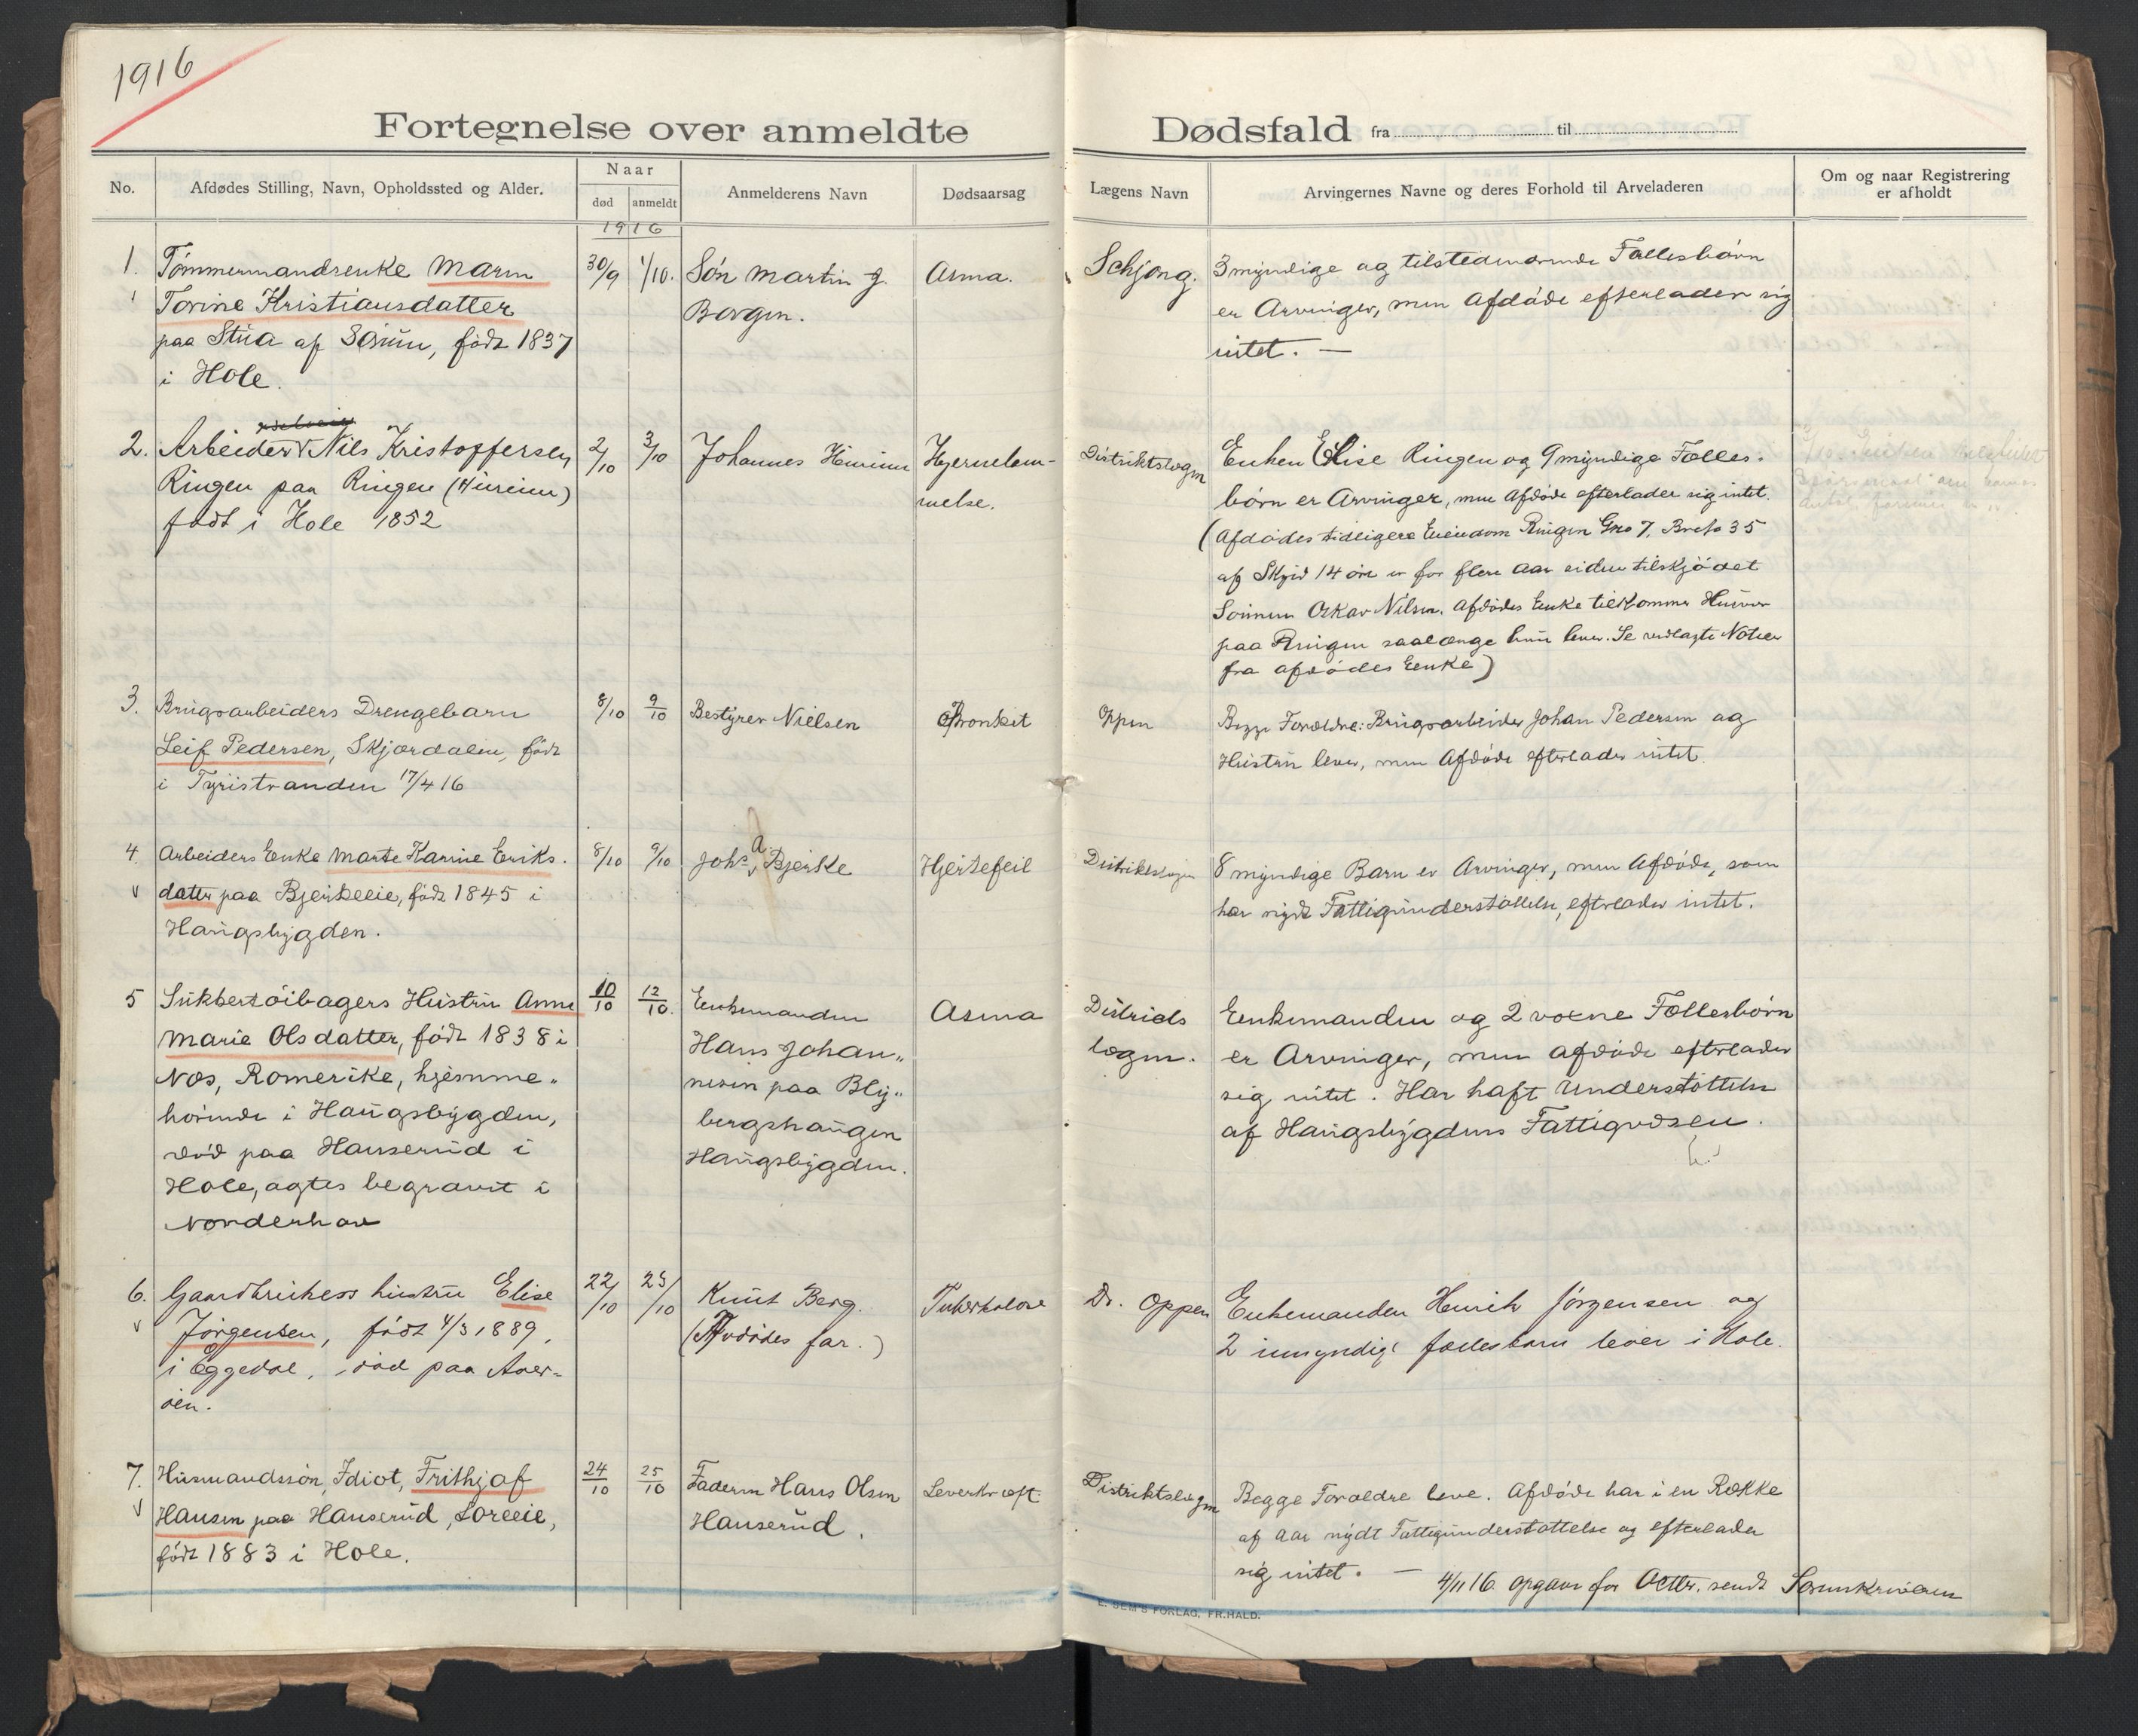 1916
Fortegnelse over anmeldte Dødsfald fra til
No.
Afdødes Stilling, Navn, Opholdssted og Alder.
Naar
død
anmeldt
Anmelderens Navn
Dødsaarsag
Lægens Navn
Arvingernes Navne og deres Forhold til Arveladeren
Om og naar Registrering
er afholdt
1916
1. Tömmermandsenke Maren
Torine Kristiansdatter
paa Stua af Sörum, född 1837
i Hole.
30/9
1/10.
Sön Martin J.
Borgen.
Asma.
Schjong.
3 myndige og tilstedeværende Fællesbörn
er Arvinger, men Afdöde efterlader sig
intet. —
2. Arbeider Nils Kristoffersen
Ringen paa Ringen
født i Hole 1852
2/10
3/10
Johannes
Hjernelam-
melse.
Distriktslægen
Enken Elise Ringen og 9 myndige Fælles-
börn er Arvinger, men Afdöde efterlader sig intet.
(Afdödes tidligere Eiendom Ringen Gno 7, Brno 35
af Skyld 14 öre er for flere Aar siden tilskjödet
Sönnen Oskar Nilsen. Afdödes Enke tilkommer Husvær
paa Ringen saalænge hun lever. Se vedlagte Notiser
fra afdödes Enke)
3. Brugsarbeiders Drengebarn
Leif Pedersen, Skjærdalen, född
i Tyristranden 17/4 16
8/10
9/10
Bestyrer Nielsen
Bronkit
Oppen
Begge Forældre: Brugsarbeider Johan Pedersen og
Hustru lever, men Afdöde efterlader intet.
4. Arbeiders Enke Marte Karine Eriks-
datter paa Bjerkeeie, född 1845 i
Haugsbygden.
8/10
9/10
Johs A. Bjerke
Hjertefeil
Distriktslægen
8 myndige Barn er Arvinger, men Afdöde, som
har nydt Fattigunderstöttelse, efterlader intet.
5 Sukkertöibagers Hustru Anne
Marie Olsdatter, född 1838 i
Næs, Romerike, hjemme-
hörende i Haugsbygden,
död paa Hanserud i
Hole, agtes begravet i
Norderhov
10/10
12/10.
Enkemanden
Hans Johan-
nesen paa Bly-
bergshaugen
Haugsbygden.
Asma
Districts
lægen.
Enkemanden og 2 voxne Fællesbörn
er Arvinger, men afdöde efterlader
sig intet. Har haft Understöttelse
af Haugsbygdens Fattigvæsen.
6. Gaardbrukers hustru Elise
Jörgensen, född 4/3 1889,
i Eggedal, död paa Aver-
öen.
22/10
23/10
Knut Berg.
(Avdödes far.)
Tuberkulose
Dr. Oppen
Enkemanden Henrik Jörgensen og
2 umyndige fællesbarn lever i Hole.
7. Husmandssön, Idiot, Frithjof
Hansen paa Hanserud, Loreeie,
född 1883 i Hole.
24/10
25/10
Faderen Hans Olsen
Hanserud.
Leverkræft
Distriktslægen
Begge Forældre leve. Afdöde har i en Række
af Aar nydt Fattigunderstöttelse og efterlader
sig intet. —
4/11 16. opgave for Octbr. sendt Sorenskriveren
E. SEM'S FORLAG, FR.HALD.